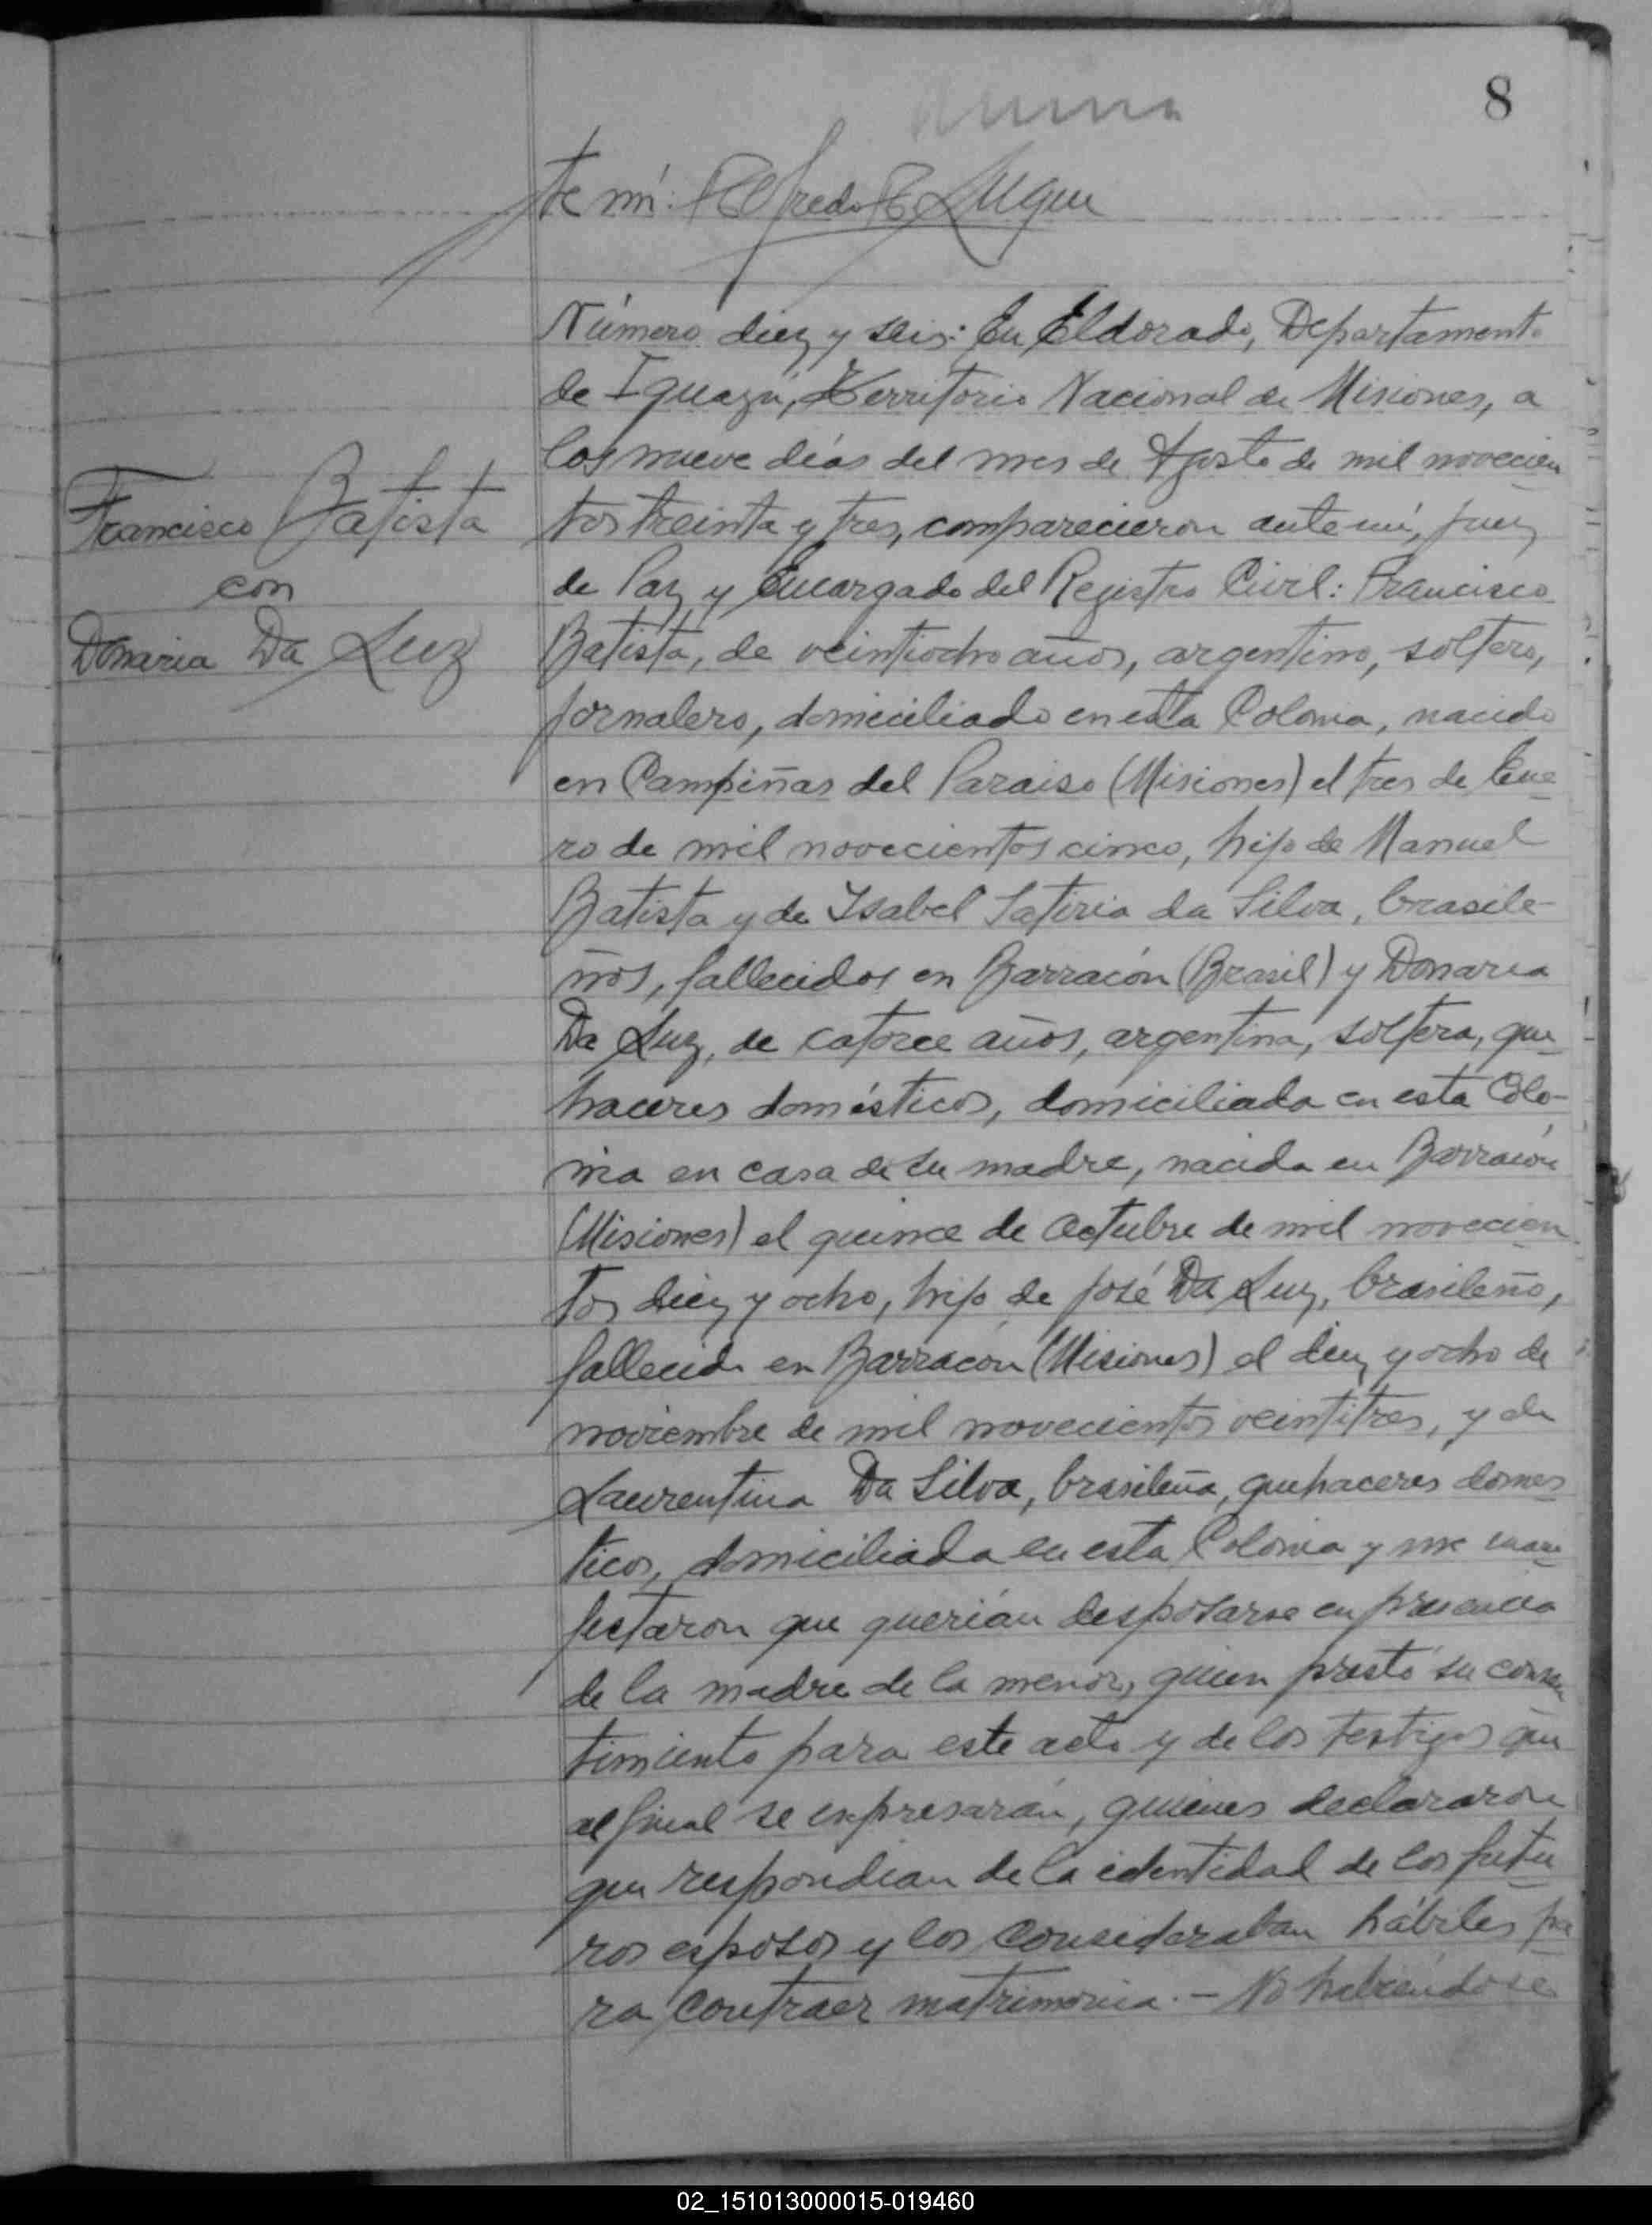 8
te mí: Alfredo R. Luque
Número diez y seis: En Eldorado, Departamento
de Iguazú, Territorio Nacional de Misiones, a
los nueve días del mes de Agosto de mil novecien
Francisco Batista
con
Donaria Da Luz
tos treinta y tres, comparecieron ante mí, juez
de Paz y Encargado del Registro Civil: Francisco
Batista, de veintiocho años, argentino, soltero,
jornalero, domiciliado en esta Colonia, nacido
en Campiñas del Paraiso (Misiones) el tres de Ene
ro de mil novecientos cinco, hijo de Manuel
Batista y de Ysabel Satiria da Silva, brasile-
ños, fallecidos en Barracón (Brasil) y Donaria
Da Luz, de catorce años, argentina, soltera, que
haceres domésticos, domiciliada en esta Colo-
nia en casa de su madre, nacida en Barracón
(Misiones) el quince de Octubre de mil novecien
tos diez y ocho, hijo de José Da Luz, brasileño,
fallecido en Barracón (Misiones) el diez y ocho de
noviembre de mil novecientos veintitres, y de
Laurentina Da Silva, brasileña, quehaceres domes
ticos, domiciliada en esta Colonia y me mani
festaron que querían desposarse en presencia
de la madre de la menor, quien prestó su consen
timiento para este acto y de los testigos que
al final se expresarán, quienes declararon
que respondian de la identidad de los futu
ros esposos y los consideraban hábiles pa
ra contraer matrimonio. - No habiéndose
02_151013000015-019460